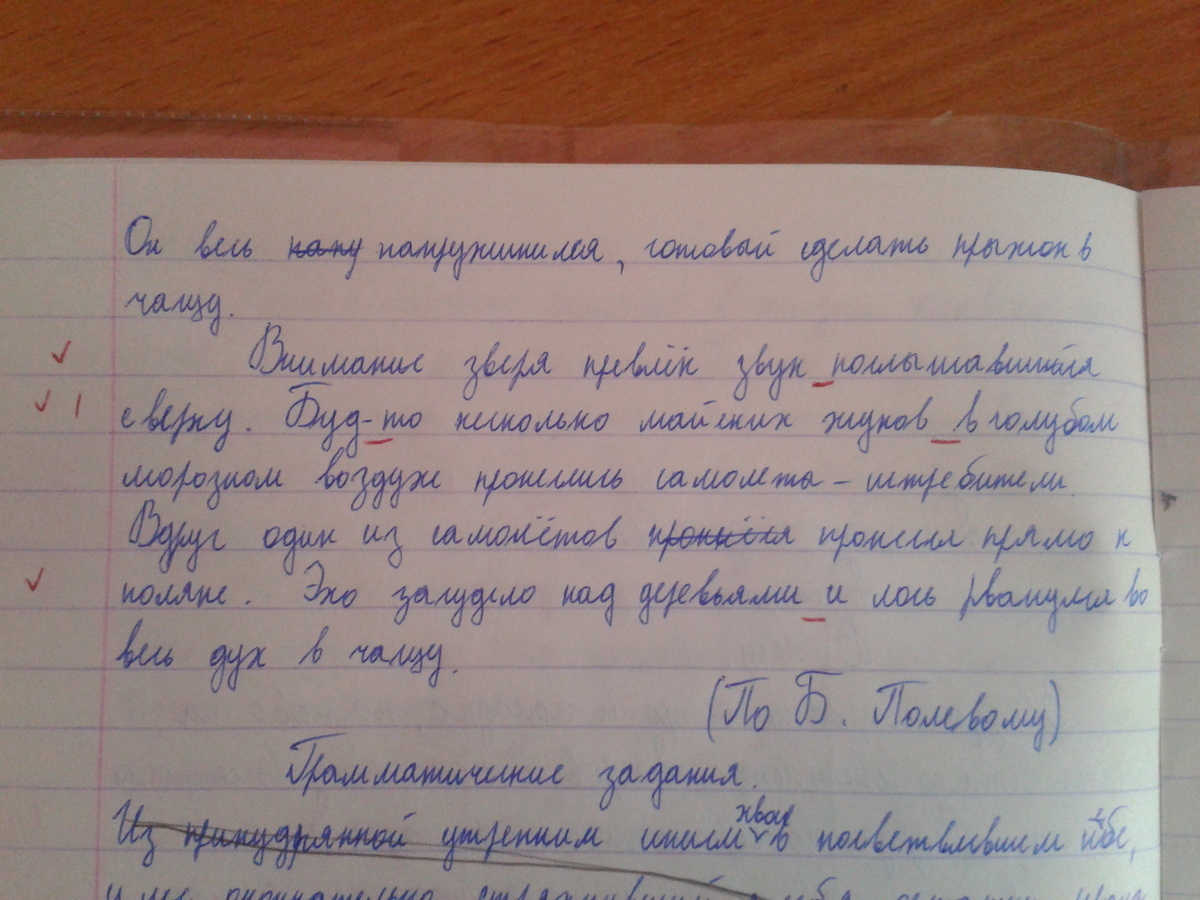 Он весь напу напружинился, готовый сделать прыжок в
чащу.
Внимание зверя превлёк звук послышавшийся
сверху. Буд-то несколько майских жуков в голубом
морозном воздухе пронеслись самолеты - истребители.
Вдруг один из самолётов пронёсся пронесся прямо к
поляне. Эхо загудело над деревьями и лось рванулся во
весь дух в чащу.
(По Б. Полевому)
Грамматические задания.
Из припудрянной утренним инеем хвои в посветвлевшем небе,
и лес окончательно стряхнувший с себя остатки